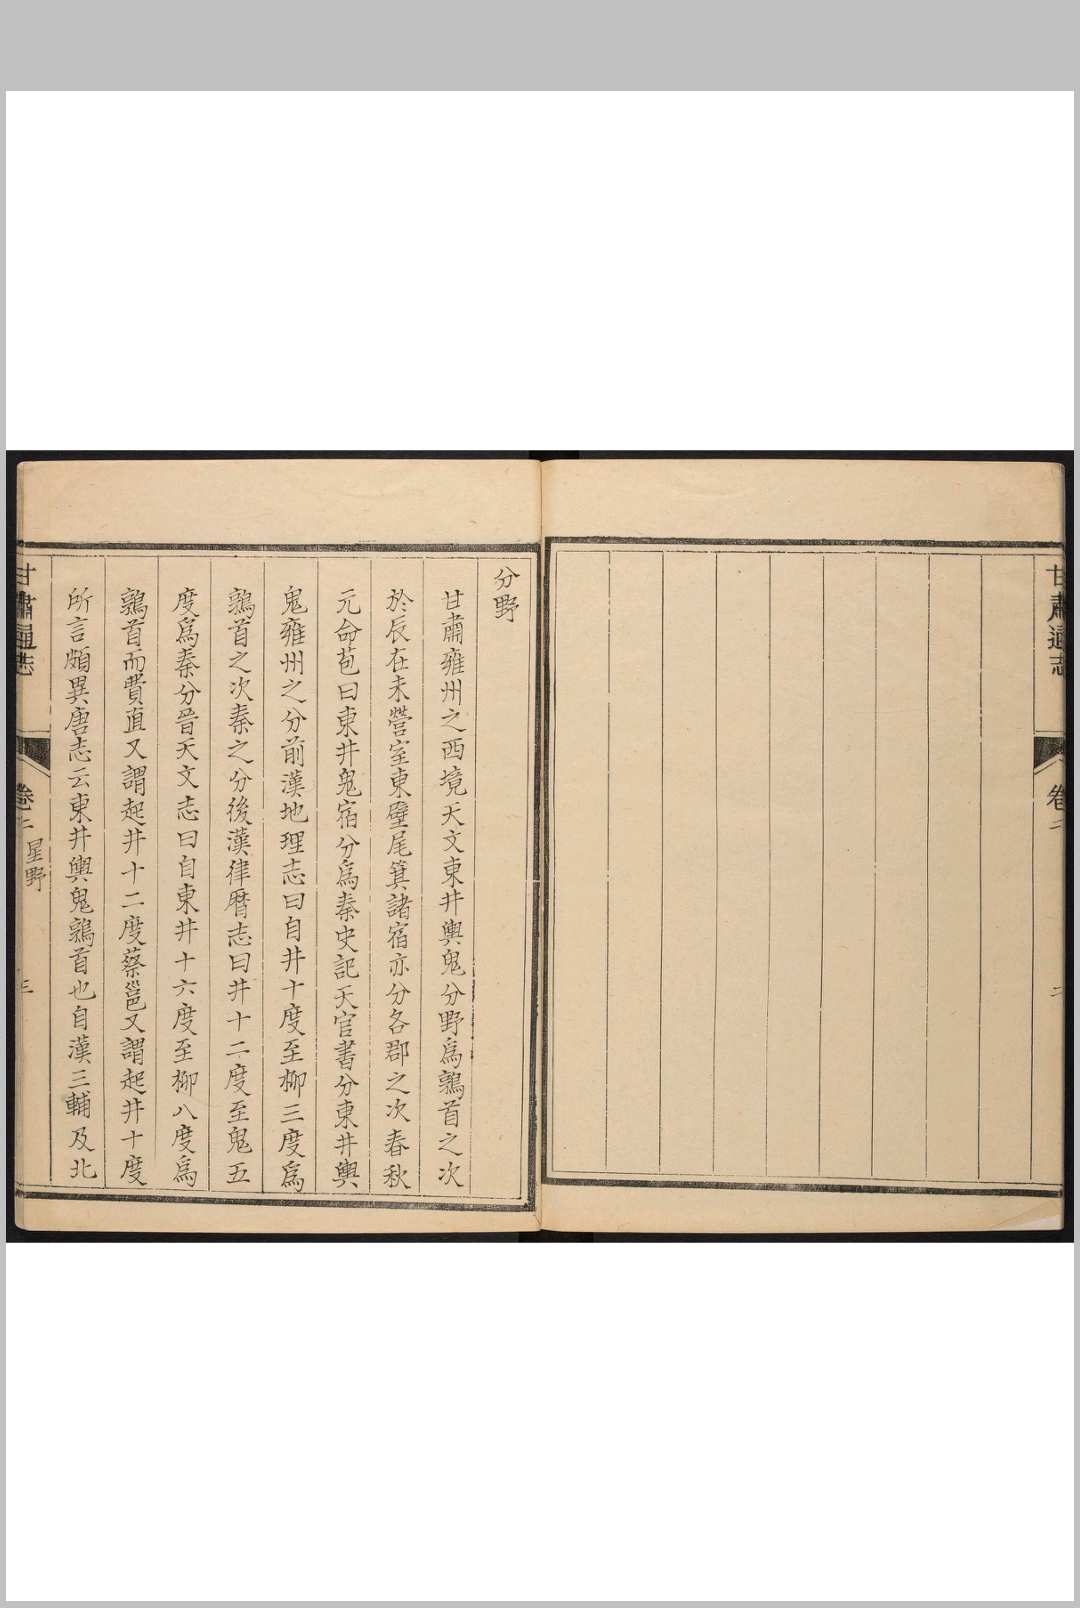 甘肅通志
卷二
二
分野
甘肅雍州之西境天文東井輿鬼分野爲鶉首之次
於辰在未營室東壁尾箕諸宿亦分各郡之次春秋
元命苞曰東井鬼宿分爲秦史記天官書分東井輿
鬼雍州之分前漢地理志曰自井十度至柳三度爲
鶉首之次秦之分後漢律曆志曰井十二度至鬼五
度爲秦分晉天文志曰自東井十六度至柳八度爲
鶉首而費直又謂起井十二度蔡邕又謂起井十度
所言頗異唐志云東井輿鬼鶉首也自漢三輔及北
甘肅通志
卷二
星野
三